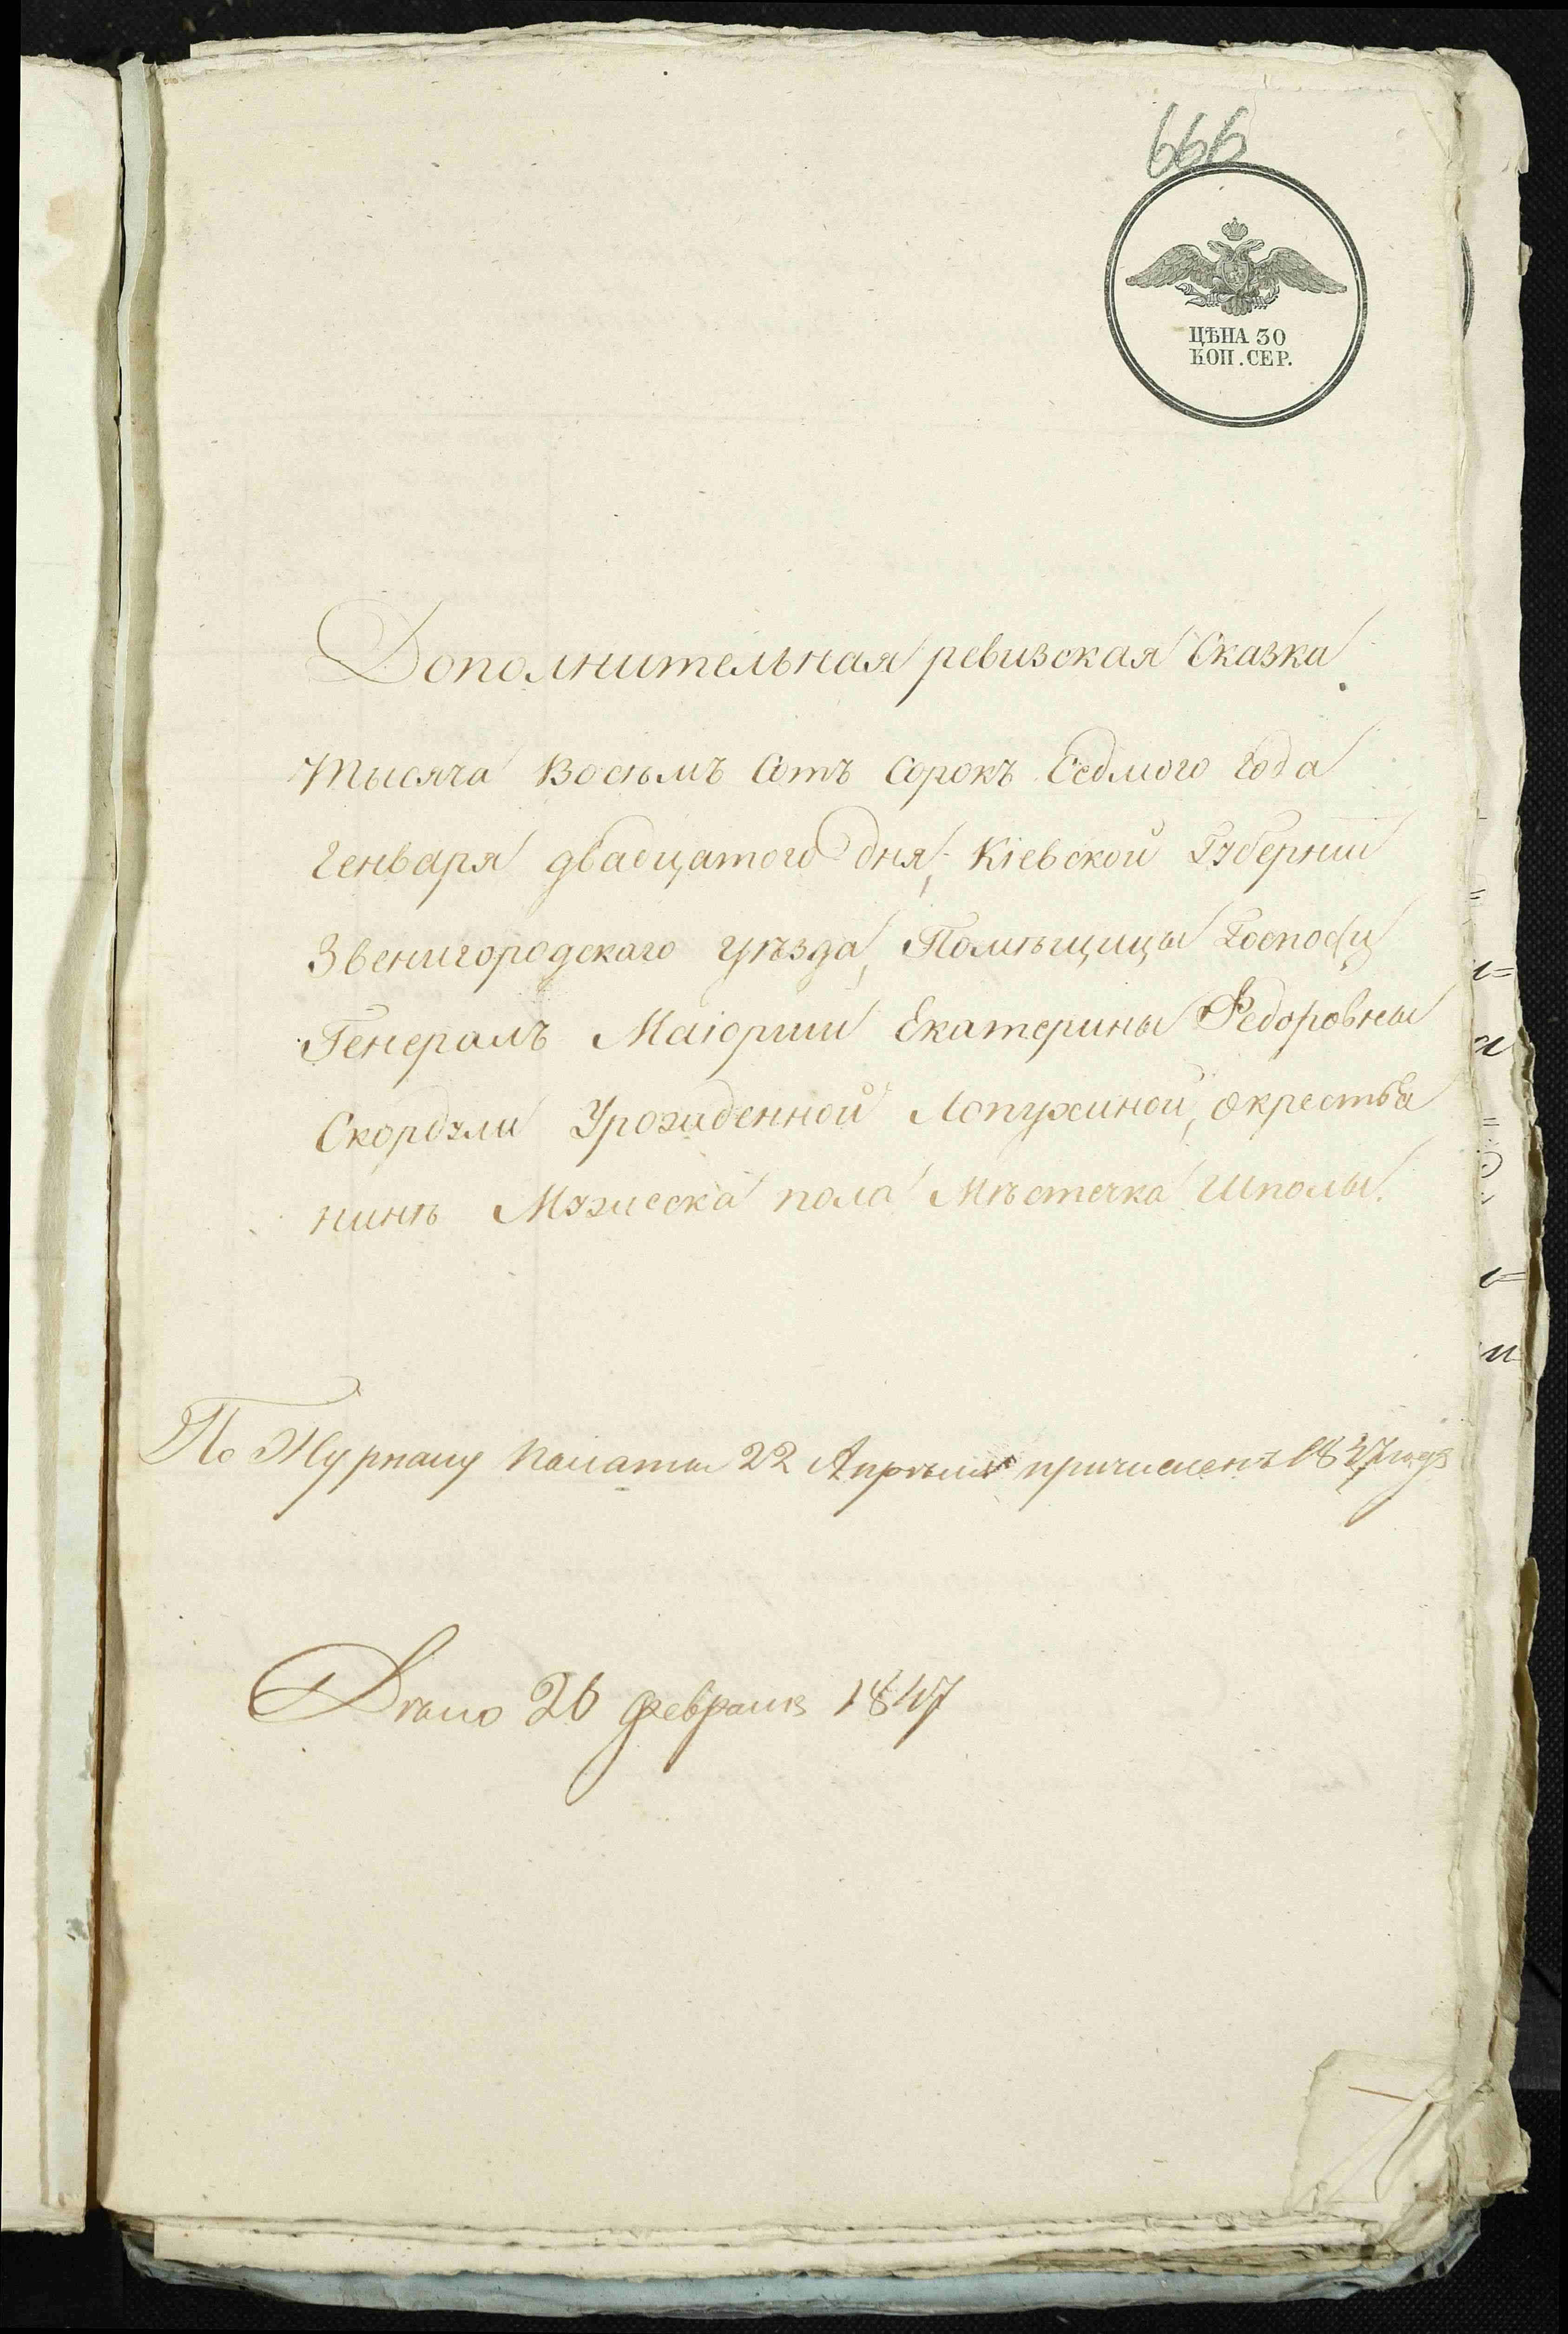 666
ЦѢНА 30
КОП. СЕР.
Дополнительная ревизская Сказка.
тысяча Восемъ Сотъ Сорокъ Седмого года
Генваря двадцатого дня, Кіевской Губерніи
Звенигородскаго уѣзда, Помѣщицы Госпожи
Генералъ Маіорши Екатерины Федоровны
Скордули Урожденной Лопухиной, о крестья
нинѣ Мужеска пола Мѣстечка Шполы.
По Журналу Палаты 22 Апрѣля причисленъ 1847 года
Дѣло 26 февраля 1847